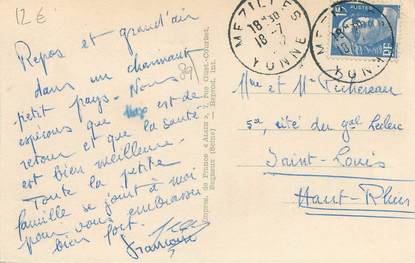 12€
Repos et grand'air
dans un charmant
petit pays. Nous
espérons que est de
retour et que la santé
est bien meilleure.
Toute la petite
famille se joint à moi
pour vous embrasser
bien fort.
Françoise
89
Impres. de France « Alain », 7, rue Gust.-Courbet,
Bagneux (Seine) - Reprod. int.
MEZILLES
18 30
18 -7
YONNE
MEZILLES
YONNE
POSTES
15F
RF
Mme et Mr
5a, cité du gal Leclerc
Saint-Louis
Haut-Rhin